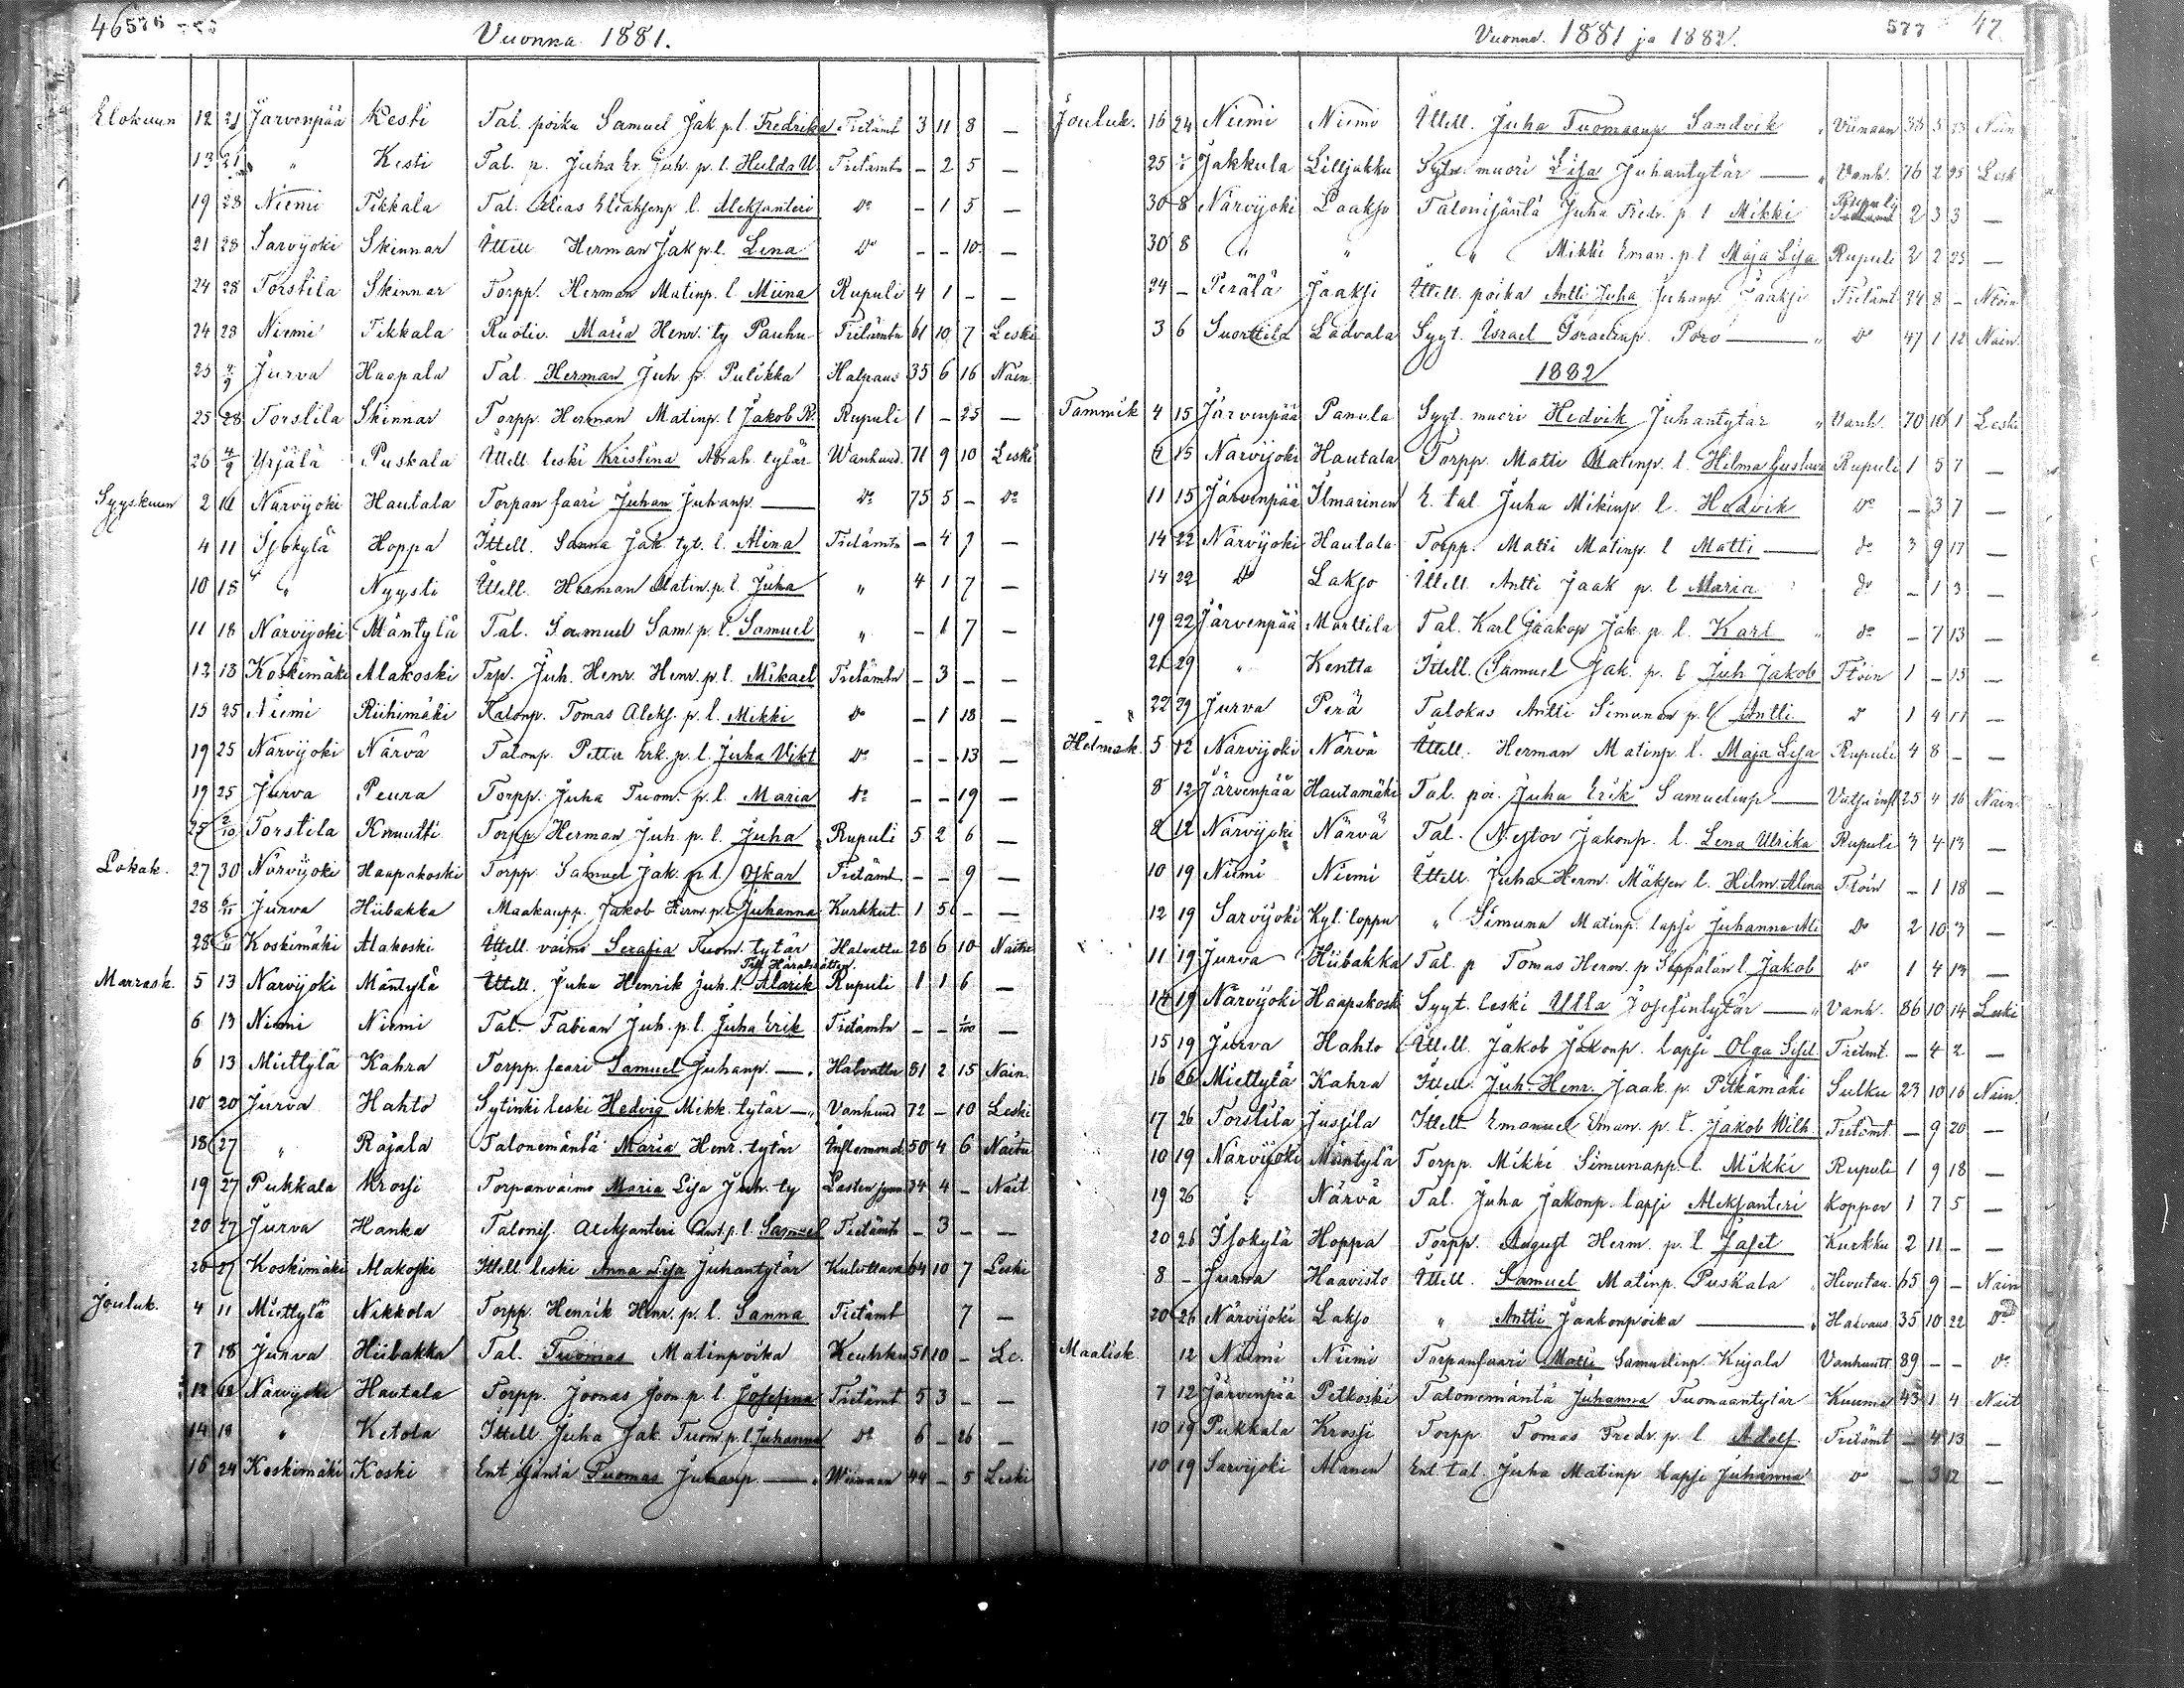 46 576
Vuonna 1881.
Elokuun 12 21 Järvenpää Kesti Tal. poika Samuel Jak p.l. Fredrika Tietämt 3 11 8 —
13 21 " Kesti Tal. p. Juha Er. Juh. p.l. Hulda U. Tietämt - 2 5 —
19 28 Niemi Tikkala Tal. Elias Eliaksenp l. Aleksanteri Do - 1 5 —
21 28 Sarvijoki Skinnar Ittell Herman Jak p.l. Lena Do - - 10 —
24 28 Torstila Skinnar Torpp. Herman Matinp. l. Miina Rupuli 4 1 - —
24 28 Niemi Tikkala Ruotiv. Maria Henr. ty Pauhu Tietämtn 61 10 7 Leski
25 4/9 Jurva Haapala Tal. Herman Juh. p. Pulikka Halpaus 35 6 16 Nain.
25 28 Torstila Skinnar Torpp. Herman Matinp. l Jakob R. Rupuli 1 - 25 —
26 4/9 Yrjälä Puskala Ittell leski Kristina Abrah. tytär Wanhuud. 71 9 10 Leski
Syyskuun 2 11 Närvijoki Hautala Torpan faari Juhan Juhanp. — Do 75 5 - Do
4 11 Isokylä Hoppa Ittell. Sanna Jak. tyt. l. Alina Tietämtn - 4 7 —
10 18 " Nyysti Ittell. Herman Matin. p.l. Juha " 4 1 7 —
11 18 Närvijoki Mäntylä Tal. Samuel Sam. p. l. Samuel " - 1 7 —
12 18 Koskimäki Alakoski Trp. Juh. Henr. Henr. p.l. Mikael Tietämtn - 3 - —
15 25 Niemi Riihimäki Talonp. Tomas Aleks. p. l. Mikki Do - 1 18 —
19 25 Närvijoki Närvä Talonp. Petter Erk. p. l. Juha Vikt Do - - 13 —
19 25 Jurva Peura Torpp. Juha Tuom. p.l. Maria Do - - 19 —
25 2/10 Torstila Knuutti Torpp Herman Juh. p. l. Juha Rupuli 5 2 6 —
Lokak. 27 30 Närvijoki Haapakoski Torpp. Samuel Jak. p. l. Oskar Tietämt - - 9 —
28 6/11 Jurva Hiibakka Maakaupp. Jakob Herm. p.l. Juhanna Kurkkut. 1 5 - —
28 6/11 Koskimäki Alakoski Ittell. vaimo Serafia Tuom. tytär Halvattu 28 6 10 Naitu
Till Häradsrätten.
Marrask. 5 13 Närvijoki Mäntylä Ittell. Juha Henrik Juh. l. Alarik Rupuli 1 1 6 —
6 13 Niemi Niemi Tal. Fabian Juh. p.l. Juha Erik Tietämtn - - —
6 13 Miettylä Kahra Torpp. faari Samuel Juhanp. — Halvattu 81 2 15 Nain.
10 20 Jurva Hahto Sytinki leski Hedvig Mikk. tytär — Vanhuud 72 - 10 Leski
18 27 " Rajala Talonemäntä Maria Henr. tytär Inflammat 50 4 6 Naitu
19 27 Pukkala Krossi Torpanvaimo Maria Lisa Juh. ty 34 4 - Nait
20 27 Jurva Hanka Talonis. Aleksanteri Ant. p.l. Samuel Tietämtn - 3 - —
26 27 Koskimäki Alakoski Ittell leski Anna Lisa Juhantytär Kulottava 64 10 7 Leski
Jouluk. 4 11 Miettylä Nikkola Torpp. Henrik Henr. p. l. Sanna Tietämt 7 —
7 18 Jurva Hiibakka Tal. Tuomas Matinpoika Keuhku 51 10 - Le.
12 18 Närvijoki Hautala Torpp. Joonas Joon p. l. Josefina Tietämt 5 3 - —
14 18 " Ketola Ittell. Juha Jak. Tuom. p. l. Juhanna Do 6 - 26 —
16 24 Koskimäki Koski Ent. isäntä Tuomas Juhanp. — Wiinaan 44 - 5 Leski
577 47
Vuonna 1881 ja 1882.
Jouluk. 16 24 Niemi Niemi Ittell. Juha Tuomaanp Sandvik Viinaan 38 5 23 Nain
25 Jakkula Lilljakku Sytn. muori Lisa Juhantytär — Vanh. 76 2 25 Lesk
30 8 Närvijoki Laakso Talonisäntä Juha Fredr. p l Mikki Rupuli 2 3 3 —
30 8 " " " Mikki Eman. p. l Maja Lisa Rupuli 2 2 23 —
24 - Perälä Jaaksi Ittell. poika Antti Juha Juhanp. Jaaksi Tietämt 24 8 - Ntöin
3 6 Suorttila Ladvala Sygt. Israel Israelinp. Poro — Do 47 1 12 Nain.
1882
Tammik 4 15 Järvenpää Panula Sygt. muori Hedvik Juhantytär " Vanh. 70 10 1 Leski
6 15 Närvijoki Hautala Torpp. Matti Matinp. l. Hilma Gustava Rupuli 1 5 7 —
11 15 Järvenpää Ilmarinen E. tal. Juha Mikinp. l. Hedvik Do - 3 7 —
14 22 Närvijoki Hautala Torpp. Matti Matinp. l Matti — do 3 9 17 —
14 22 Do Lakso Ittell. Antti Jaak p. l Maria do - 1 3 —
19 22 Järvenpää Marttila Tal. Karl Jaakop Jak. p. l. Karl " do - 7 13 —
21 29 " Kentta Ittell. Samuel Jak. p. l Juh Jakob Ttöin 1 - 15 —
22 29 Jurva Perä Talokas Antti Simunan p.l Antti Do 1 4 11 —
Helmik. 5 12 Närvijoki Närvä Ittell. Herman Matinp. l. Maja Lisa Rupuli 4 8 - —
8 12 Järvenpää Hautamäki Tal. poi. Juha Erik Samuelinp — Vatsa infl 25 4 16 Nain.
2 12 Närvijoki Närvä Tal. Nestor Jakonp. l. Lena Ulrika Rupuli 3 4 13 —
10 19 Niemi Niemi Ittell. Juha Herm. Mäksen l. Helm. Alina Ttöin - 1 18 —
12 19 Sarvijoki Kyl. loppu " Simuna Matinp. lapsi Juhanna Ali Do 2 10 3 —
11 19 Jurva Hiibakka Tal. p Tomas Herm. p Seppälän l. Jakob Do 1 4 13 —
14 19 Närvijoki Haapakoski Sygt. leski Ulla Josefintytär — Vanh. 86 10 14 Leski
15 19 Jurva Hahto Ittell. Jakob Jakonp. lapsi Olga Sefil. Tietmt. - 4 2 —
16 26 Miettylä Kahra Ittell. Juh. Henr. Jaak. p. Pitkämäki Sulku 23 10 16 Nain.
17 26 Torstila Jussila Ittell. Emanuel Eman. p. l. Jakob Wilh. Tietämt. - 9 20 —
10 19 Närvijoki Mäntylä Torpp. Mikki Simunapp. l. Mikki Rupuli 1 9 18 —
19 26 " Närvä Tal. Juha Jakonp. lapsi Aleksanteri Koppor 1 7 5 —
20 26 Isokylä Hoppa Torpp. August Herm. p. l. Jafet Kurkku 2 11 - —
8 - Jurva Haavisto Ittell. Samuel Matinp. Puskala Hivutau. 65 9 - Nain
20 26 Närvijoki Lakso " Antti Jaakonpoika — Halvaus 35 10 22 Do
Maalisk 12 Niemi Niemi Torpanfaari Matti Samuelinp. Kujala Vanhuutt. 89 - - Do
7 12 Järvenpää Petkoski Talonemäntä Juhanna Tuomaantytär Kuuma 43 1 4 Nait
10 19 Pukkala Krossi Torpp. Tomas Fredr. p. l Adolf Tietämt - 4 13 —
10 19 Sarvijoki Alanen Ent. tal. Juha Matinp lapsi Juhanna Do - 3 12 —